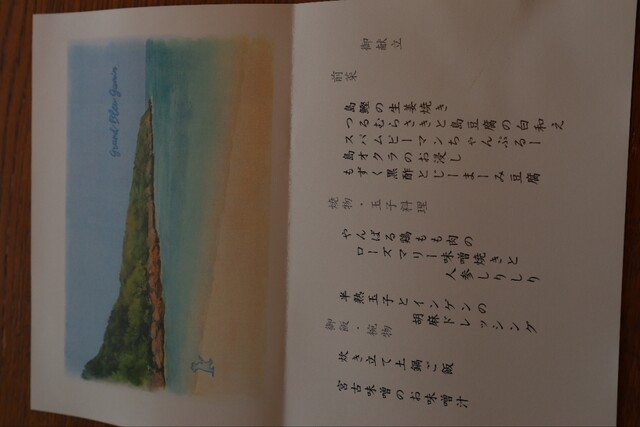 Grand Bleu Gamin
御献立
前菜
島鰹の生姜焼き
つるむらさきと島豆腐の白和え
スパムピーマンちゃんぷるー
島オクラのお浸し
もずく黒酢とじーまーみ豆腐
焼物・玉子料理
やんばる鶏もも肉の
ローズマリー味噌焼きと
人参しりしり
半熟玉子とインゲンの
胡麻ドレッシング
御飯・椀物
炊き立て土鍋ご飯
宮古味噌のお味噌汁